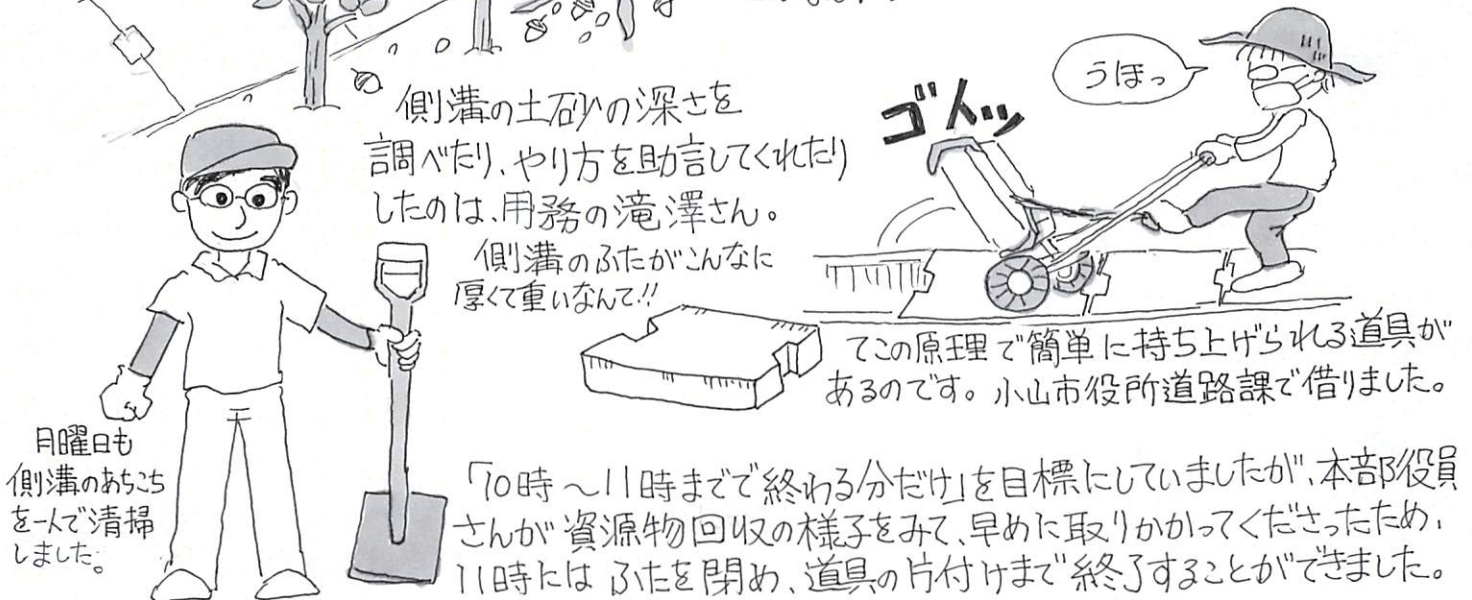 側溝の土砂の深さを
調べたり、やり方を助言してくれたり
したのは、用務の滝澤さん。
側溝のふたがこんなに
厚くて重いなんて!!
ゴトッ
うほっ
てこの原理で簡単に持ち上げられる道具が
あるのです。小山市役所道路課で借りました。
月曜日も
側溝のあちこち
を一人で清掃
しました。
「10時～11時までで終わる分だけ」を目標にしていましたが、本部役員
さんが資源物回収の様子をみて、早めに取りかかってくださったため、
11時には ふたを閉め、道具の片付けまで終了することができました。